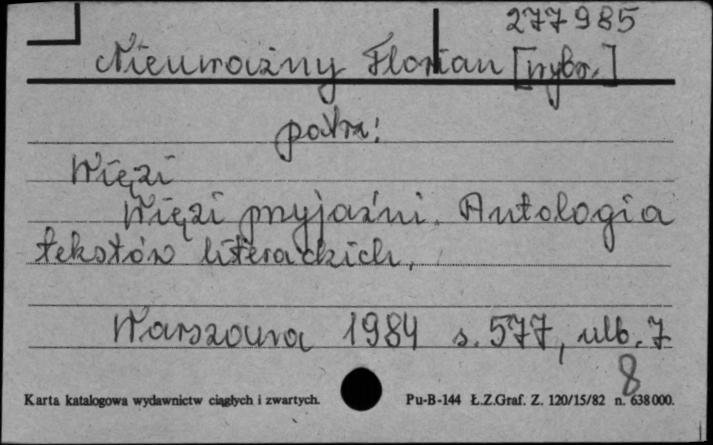 277985
Nieuważny Florian [wybr.]
patrz:
Więzi
Więzi przyjaźni. Antologia
tekstów literackich.
Warszawa 1984 s. 577, nlb. 7
8
Karta katalogowa wydawnictw ciągłych i zwartych. Pu-B-144 Ł.Z.Graf. Z. 120/15/82 n. 638000.